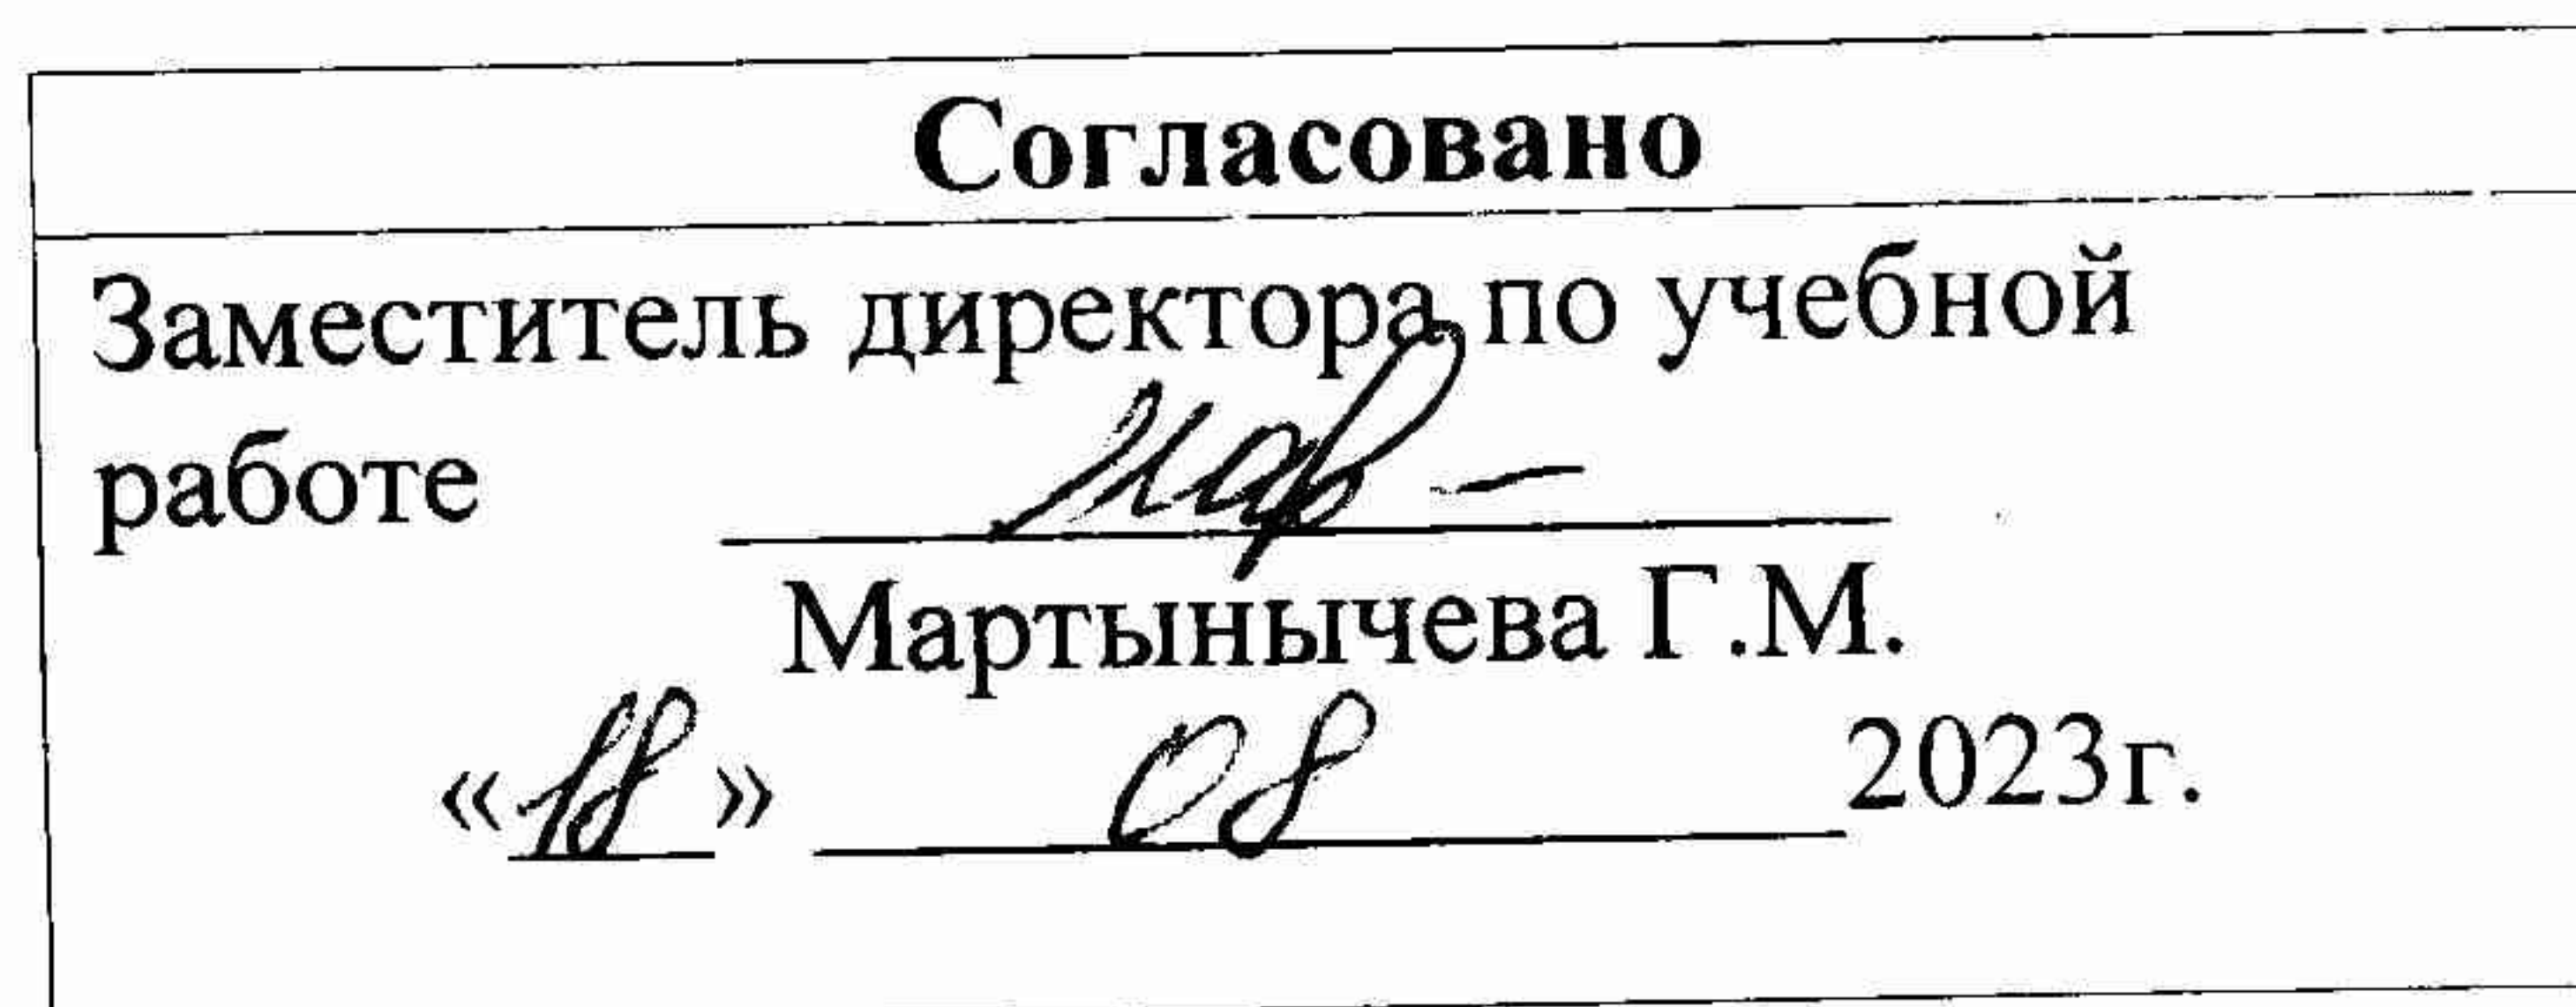 Согласовано
Заместитель директора по учебной
работе
Мартынычева Г.М.
«18» 08 2023г.